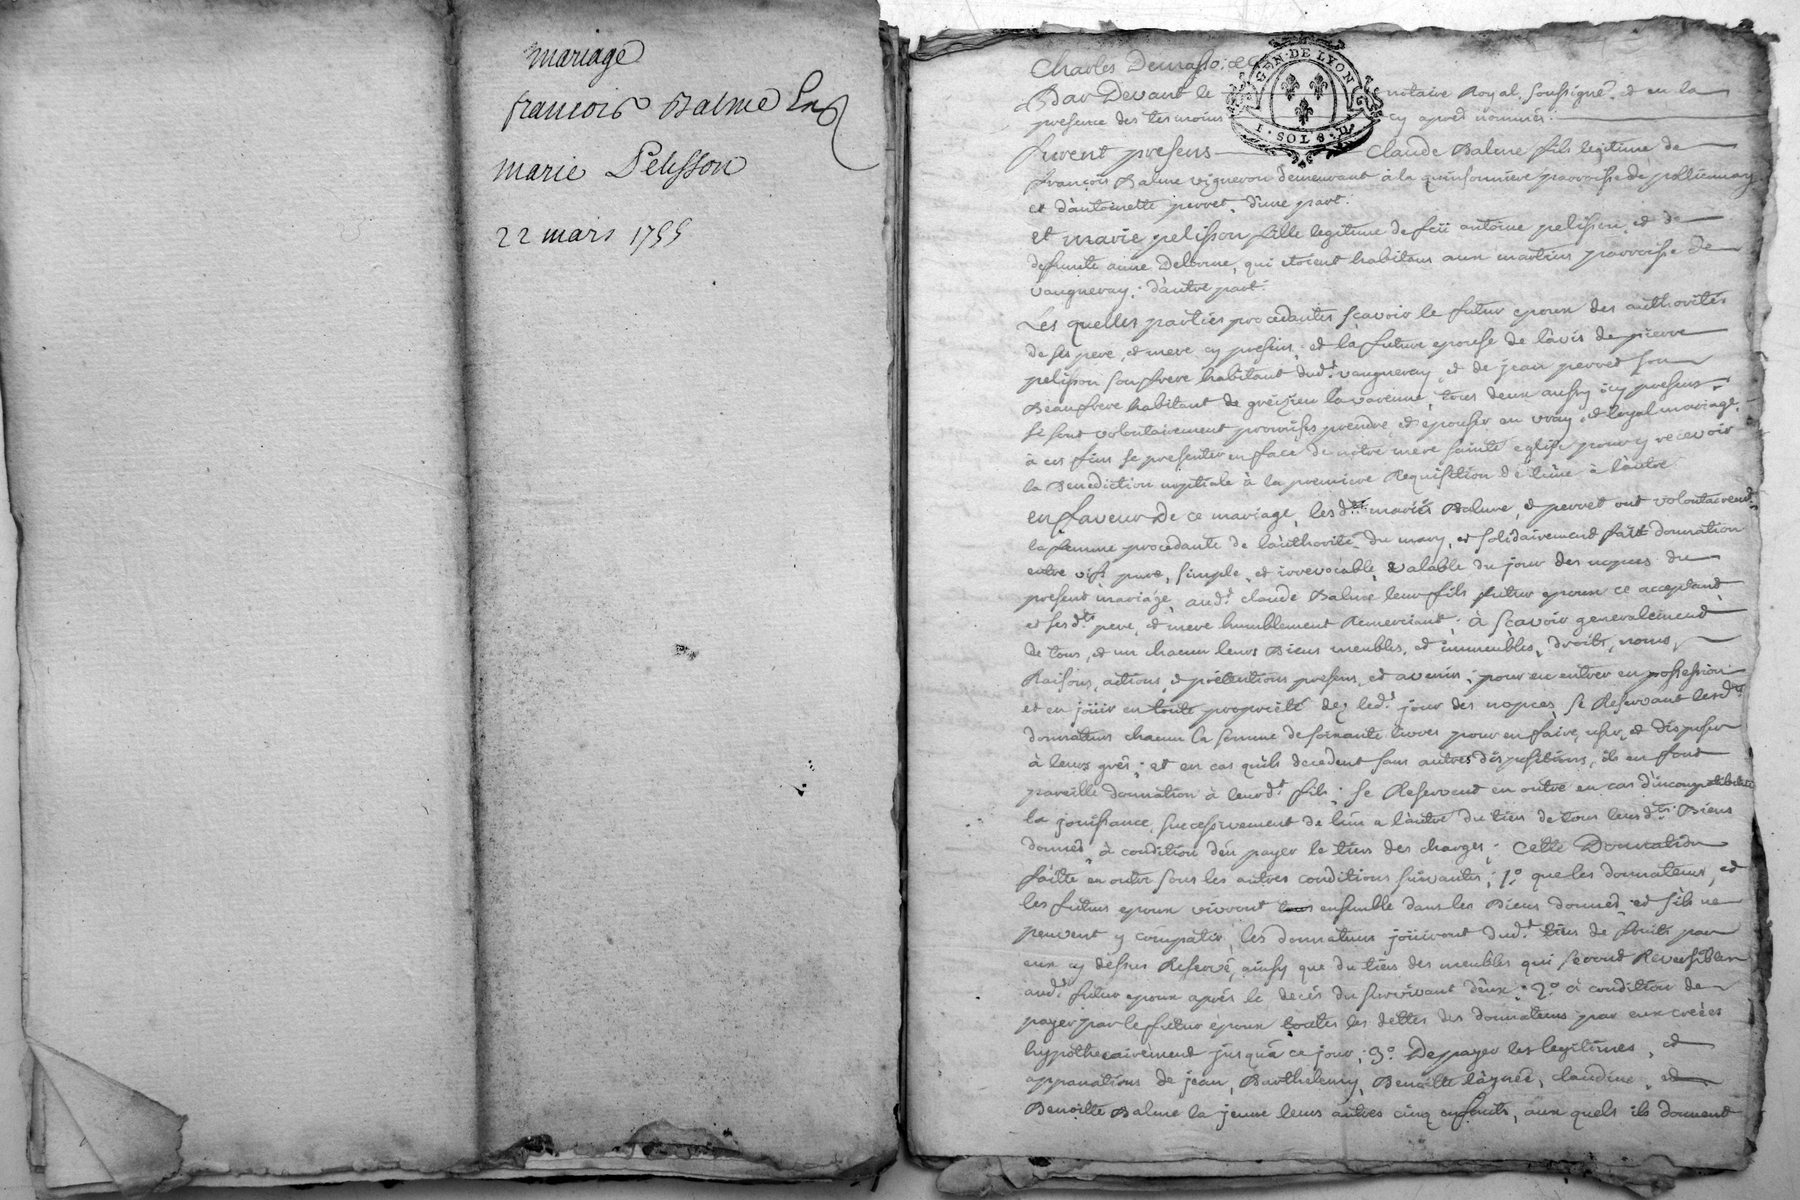 mariage
francois Balme Et
marie Pelisson
22 mars 1755
GEN. DE LYON
I. SOL 8. D.
Charles Demasso
Par Devant le notaire Royal, soussigné, et en la
presence des temoins cy aprés nommés.
furent presens Claude Balme fils legitime de
françois Balme vigneron demeurant à la quinsonniere parroisse de pollionnay
et d'antoinette perret, d'une part.
et marie pelisson fille legitime de feü antoine pelisson, et de
defunte anne Delorme, qui etoient habitans aux martins parroisse de
vaugneray; d'autre part.
Les quelles parties procedantes sçavoir le futur epoux des authorités
de ses pere, et mere cy presens, et la future epouse de l'avis de pierre
pelisson son frere habitant dud.t vaugneray, et de jean perret son
Beaufrere habitant de grézieu la varenne, tous deux aussy icy presens,
se sont volontairement promises prendre, et épouser en vray, et loyal mariage,
à ces fins se presenter en face de notre mere sainte eglise pour y recevoir
la Benediction nuptiale à la premiere Requisition de l'une à l'autre.
en faveur de ce mariage, les d.ts mariés Balme, et perret ont volontairem.t
la femme procedante de l'authorité du mary, et solidairement fait donnation
entre vifs pure, simple, et irrevocable, valable du jour des nopces du
present mariage, aud.t claude Balme leur fils futur epoux ce acceptant
et ses d.ts pere, et mere humblement Remerciant; à sçavoir generalement
de tous, et un chacun leurs Biens meubles, et immeubles, droits, noms,
Raisons, actions, et prétentions presens, et avenir; pour en entrer en possession
et en joüir en toute propriété dez led.t jour des nopces, se Reservant lesd.ts
donnateurs chacun la somme de soixante livres pour en faire, user, et disposer
à leurs grés; et en cas qu'ils decedent sans autres dispositions, ils en font
pareille donnation à leurd.t fils; se Reservent en outre en cas d'incompatibilité
la jouissance successivement de l'un a l'autre du tiers de tous leurs d.ts Biens
donnés, à condition d'en payer le tiers des charges; cette Donnation
faitte en outre sous les autres conditions suivantes; 1.° que les donnateurs, et
les futurs epoux vivront ensemble dans les Biens donnés, et s'ils ne
peuvent y compatir, les donnateurs joüiront dud.t tiers de fruits par
eux cy dessus Reservé, ainsy que du tiers des meubles qui seront Reversibles
aud.t futur epoux aprés le decés du survivant d'eux; 2.° à condition de
payer par le futur epoux toutes les dettes des donnateurs par eux créées
hypothecairement jusqu'a ce jour; 3.° De payer les legitimes, et
appanations de jean, Barthelemy, Benoitte l'aynée, claudine, et
Benoitte Balme la jeune leurs autres cinq enfants, aux quels ils donnent